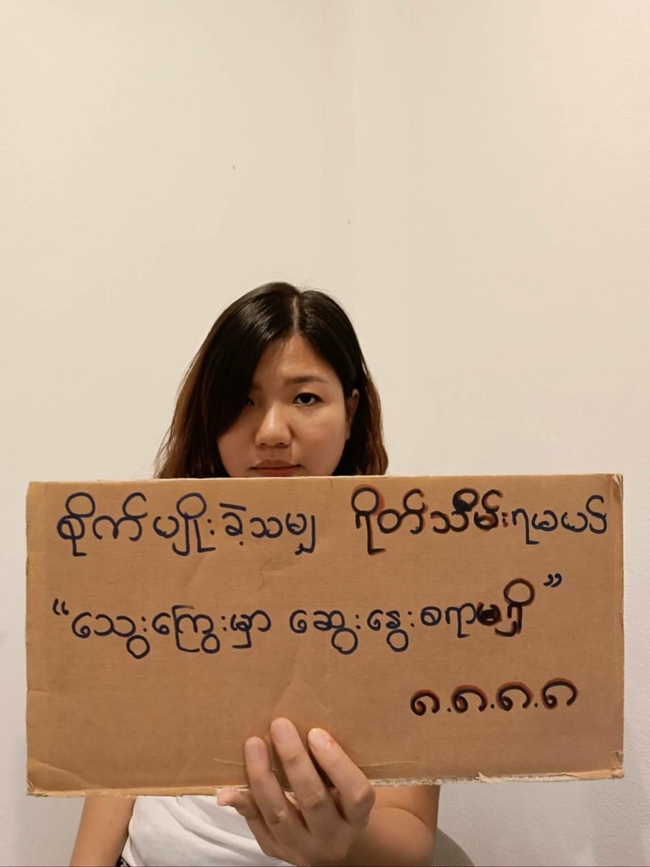 စိုက်ပျိုးခဲ့သမျှ ရိုတ်သိမ်းရမယ်
“သွေးကြွေးမှာ ဆွေးနွေးစရာမရှိ”
၈.၈.၈.၈